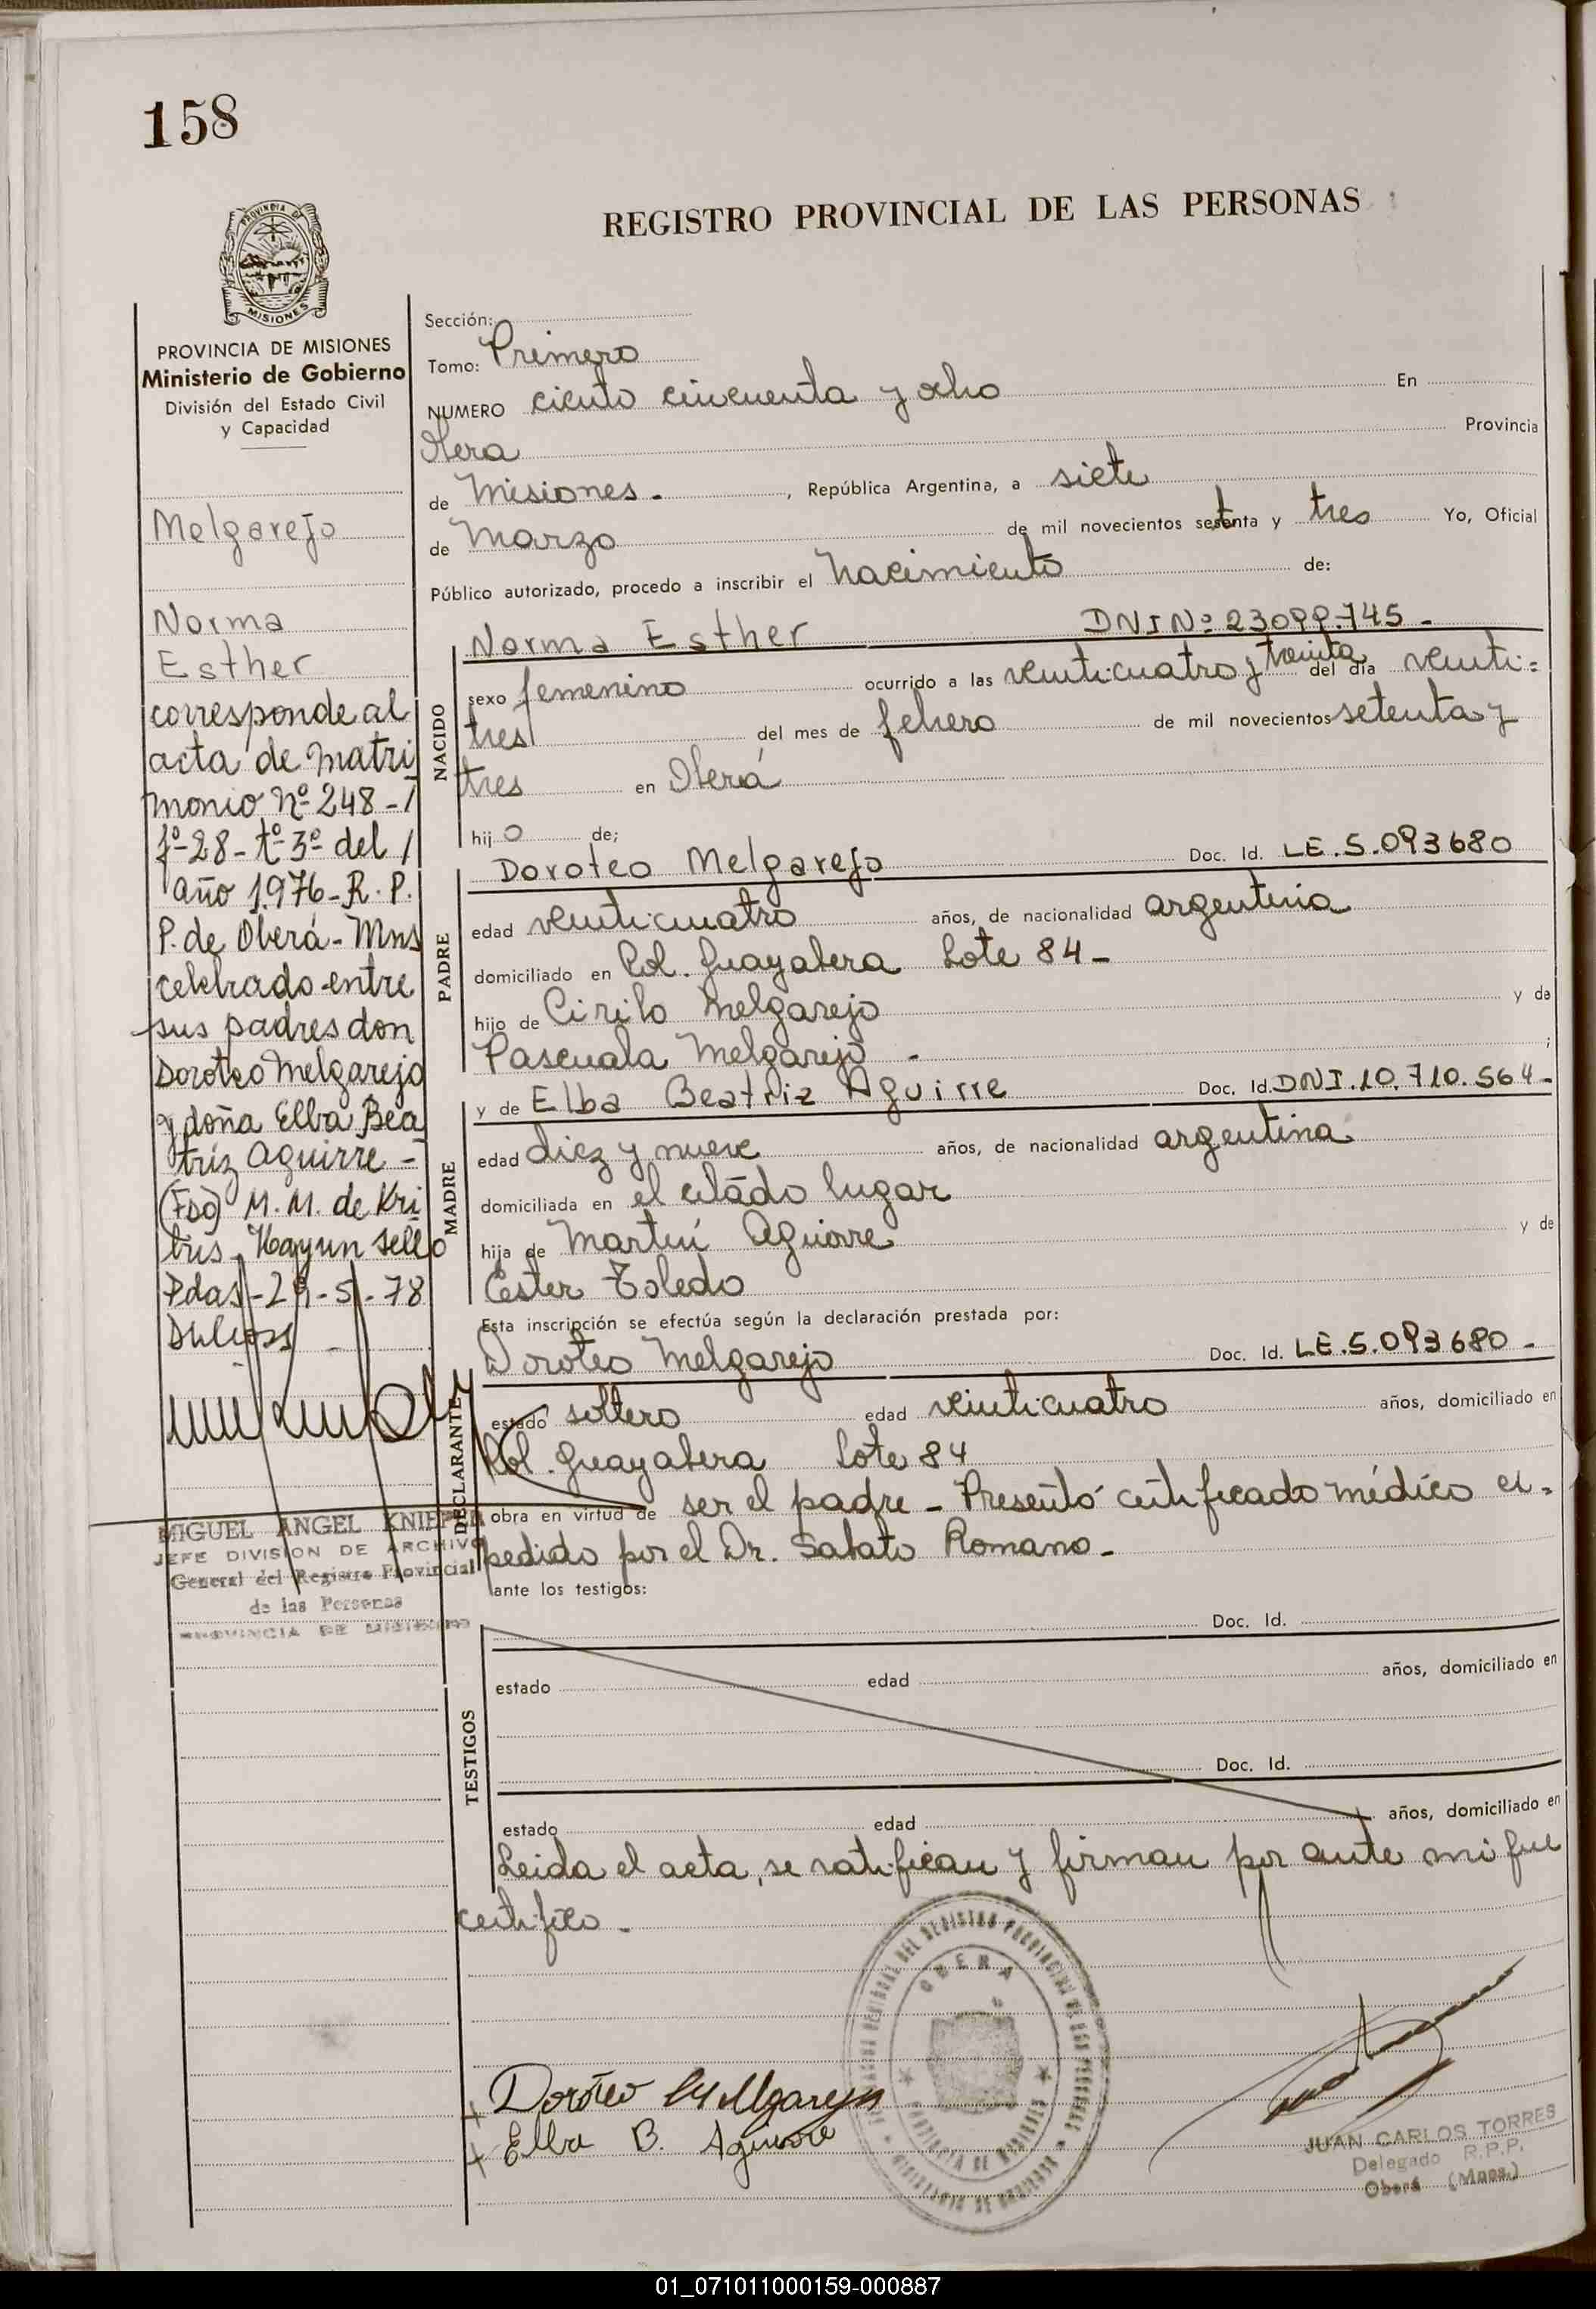 158
PROVINCIA DE
MISIONES
REGISTRO PROVINCIAL DE LAS PERSONAS
PROVINCIA DE MISIONES
Ministerio de Gobierno
División del Estado Civil
y Capacidad
Melgarejo
Norma
Esther
corresponde al
acta de matri
monio Nº 248-/
fº-28-tº 3º del /
año 1.976-R.P.
P. de Oberá-Mns
celebrado entre
sus padres don
Doroteo Melgarejo
y doña Elba Bea
tríz Aguirre -
(Fdo) M. M. de Kri
Hay un sello
Pdas-29-5-78
MIGUEL ANGEL
JEFE DIVISION DE ARCHIVO
General del Registro Provincial
de las Personas
PROVINCIA DE MISIONES
Sección:
Tomo: Primero
NUMERO ciento cincuenta y ocho En
Obera Provincia
de Misiones. - , República Argentina, a siete
de Marzo de mil novecientos setenta y tres Yo, Oficial
Público autorizado, procedo a inscribir el Nacimiento de:
NACIDO
Norma Esther DNI Nº 23099.745 -
sexo femenino ocurrido a las veinticuatro y treinta del día veinti-
tres del mes de febrero de mil novecientos setenta y
tres en Oberá
hij o de;
PADRE
Doroteo Melgarejo Doc. Id. LE.5.093680
edad veinticuatro años, de nacionalidad argentina
domiciliado en Col. Guayabera Lote 84-
hijo de Cirilo Melgarejo y de
Pascuala Melgarejo - ;
MADRE
y de Elba Beatriz Aguirre Doc. Id. DNI.10.710.564-
edad diez y nueve años, de nacionalidad argentina
domiciliada en el citado lugar
hija de Martín Aguirre y de
Ester Toledo
Esta inscripción se efectúa según la declaración prestada por:
DECLARANTE
Doroteo Melgarejo Doc. Id. LE.5.093680 -
estado soltero edad veinticuatro años, domiciliado en
Col. Guayabera Lote 84
obra en virtud de ser el padre - Presentó certificado médico ex-
pedido por el Dr. Sabato Romano -
ante los testigos:
TESTIGOS
Doc. Id.
estado edad años, domiciliado en
Doc. Id.
estado edad años, domiciliado en
Leida el acta, se ratifican y firman por ante mi que
certifico -
OBERA
Doroteo Melgarejo
Elba B. Aguirre
JUAN CARLOS TORRES
Delegado R.P.P.
Oberá (Mnes.)
01_071011000159-000887